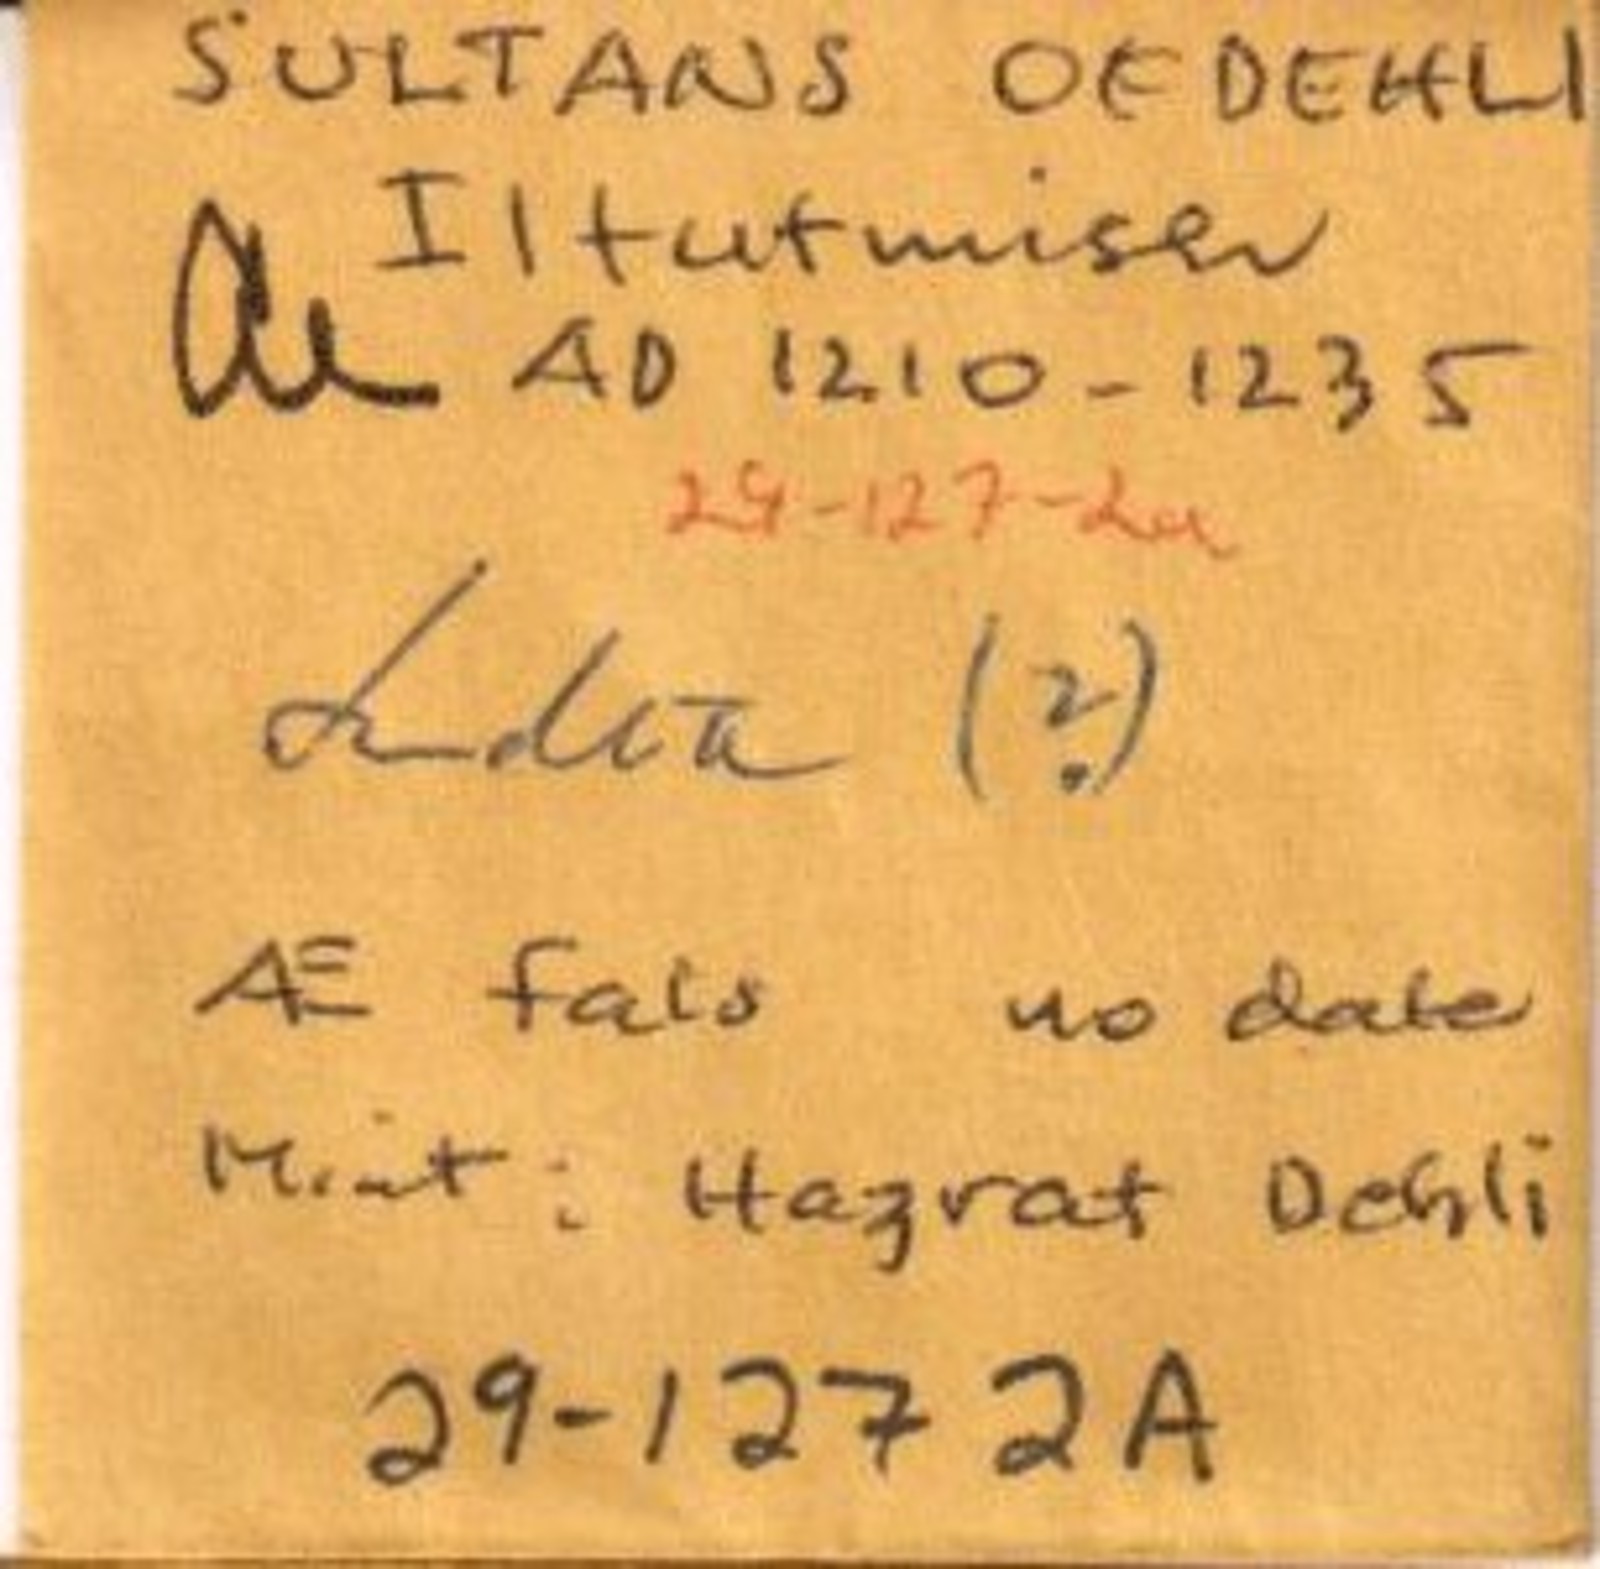 SULTANS OF DEHLI
Iltutmish
Ae AD 1210-1235
29-127-2a
India (?)
Æ fals no date
Mint: Hazrat Dehli
29-127 2A